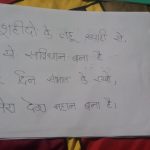 शहीदों के लहू स्याही से
ये संविधान बना है
दिन समाज के रखो,
मेरा देश महान बना है।